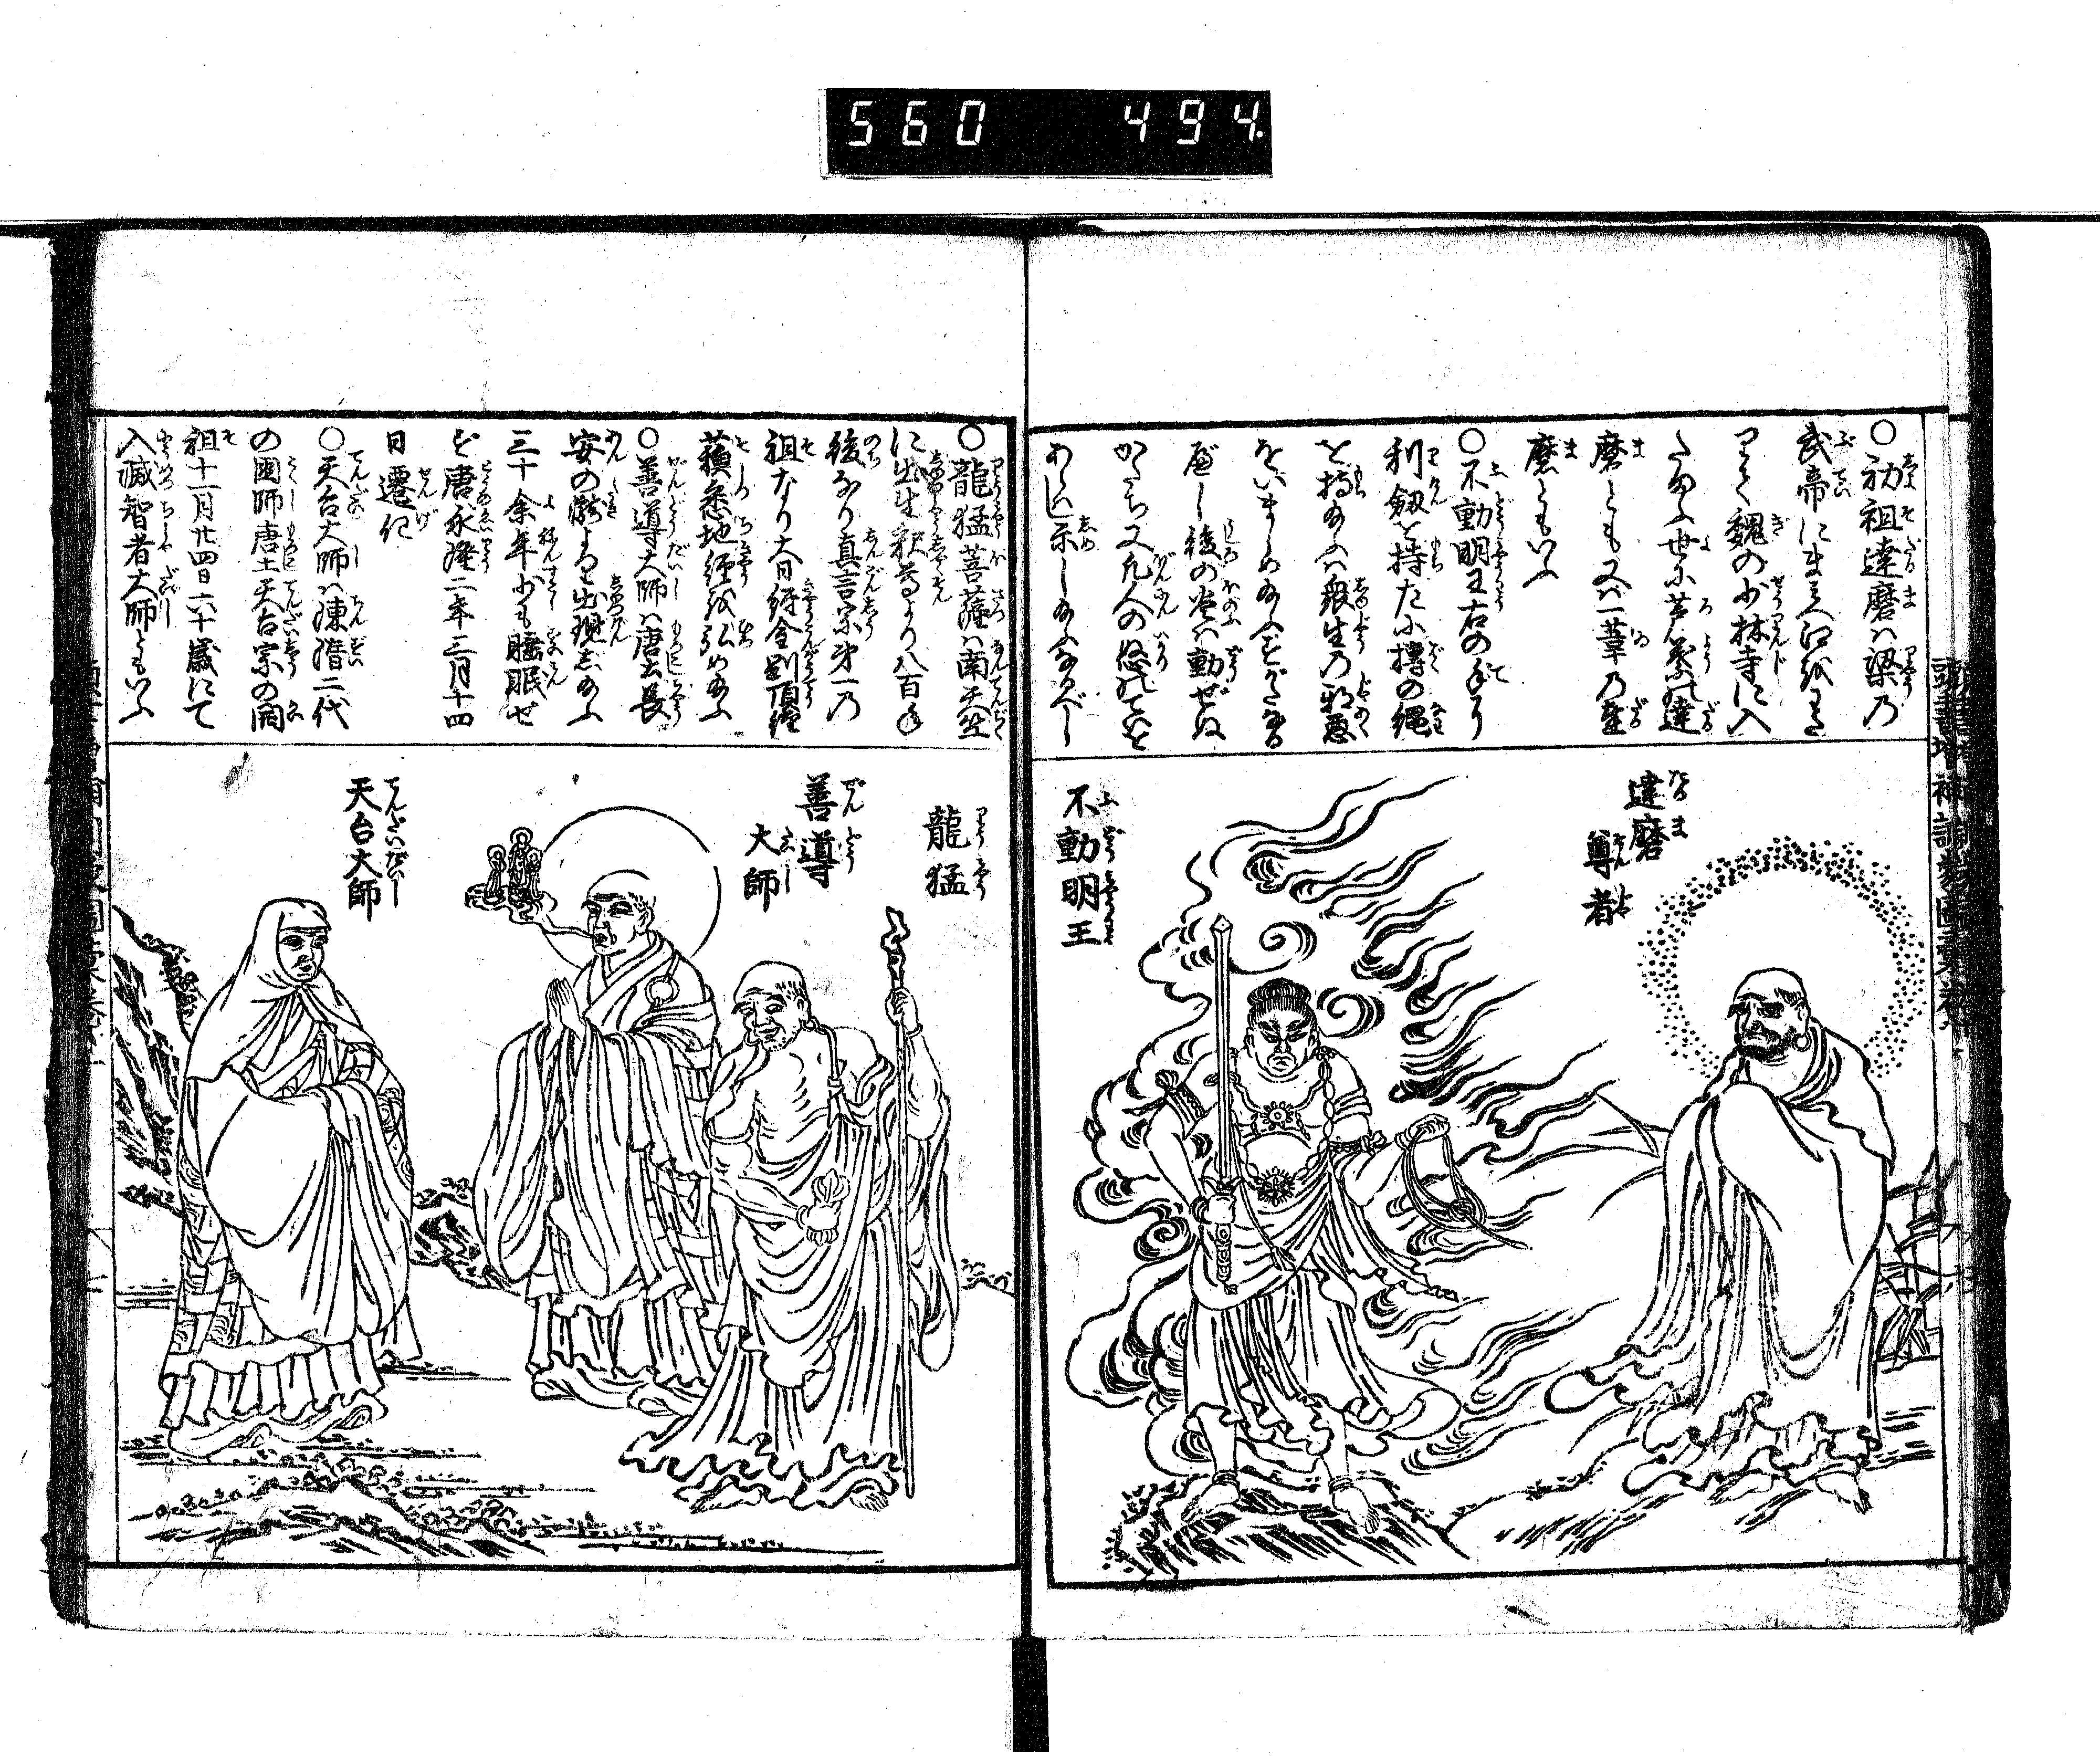 560 494
○初祖達磨ハ梁乃
武帝にまみへ江を
わたり魏の少林寺に入
たまふ世に芦葉の達
磨ともまたハ一葦の達
磨ともいふ
○不動明王右の手に
利劔を持た小縛の縄
を持給ふハ衆生乃邪悪
をいましめ給ふすがたなる
べし後の火ハ動ぜぬ
かたち又凡人の怒れるを
あらハ示し給ふなるべし
達磨
尊者
不動明王
○龍猛菩薩ハ南天竺
に出生釈尊より八百年
後なり真言宗第一乃
祖なり大日経金剛頂経
蘓悉地経を弘め給ふ
○善導大師ハ唐土長
安の瀧より出現し給ふ
三十余年少も睡眠せ
ず唐永隆二年三月十四
日遷化
○天台大師ハ陳隋二代
の國師唐土天台宗の開
祖十一月廿四日六十歳にて
入滅智者大師ともいふ
龍猛
善導
大師
天台大師